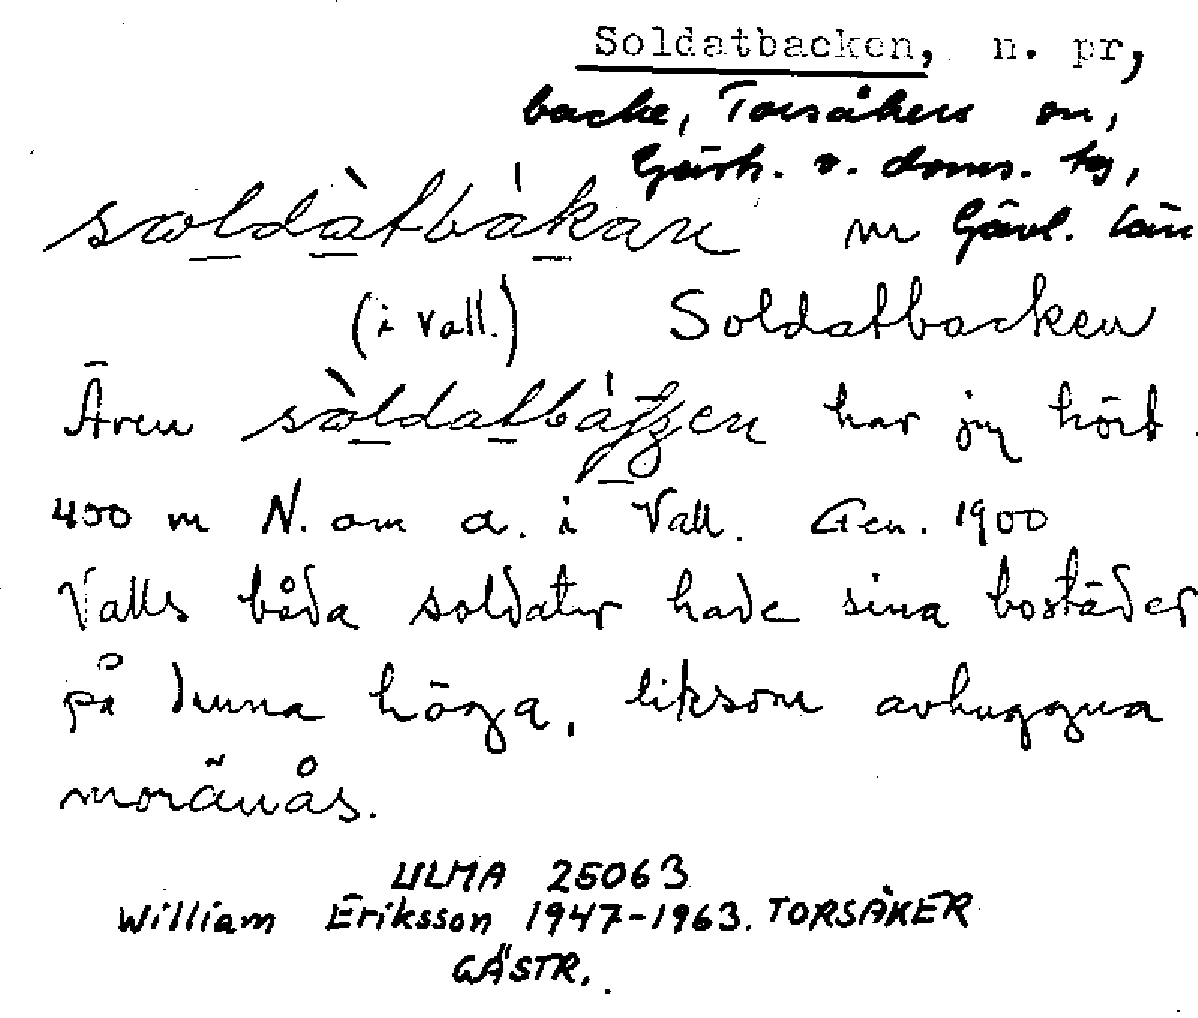 Soldatbacken, n. pr,
backe, Torsåkers sn,
Gästr. v. doms. tg,
sͻldàtbákan m Gävl. län
(i vall.) Soldatbacken
Även sòldatbátʃen har jag hört.
400 m N. om a. i Vall. Gen. 1900
Valls båda soldater hade sina bostäder
på denna höga, liksom avhuggna
moränås.
ULMA 25063
William Eriksson 1947-1963. TORSÅKER
GÄSTR.